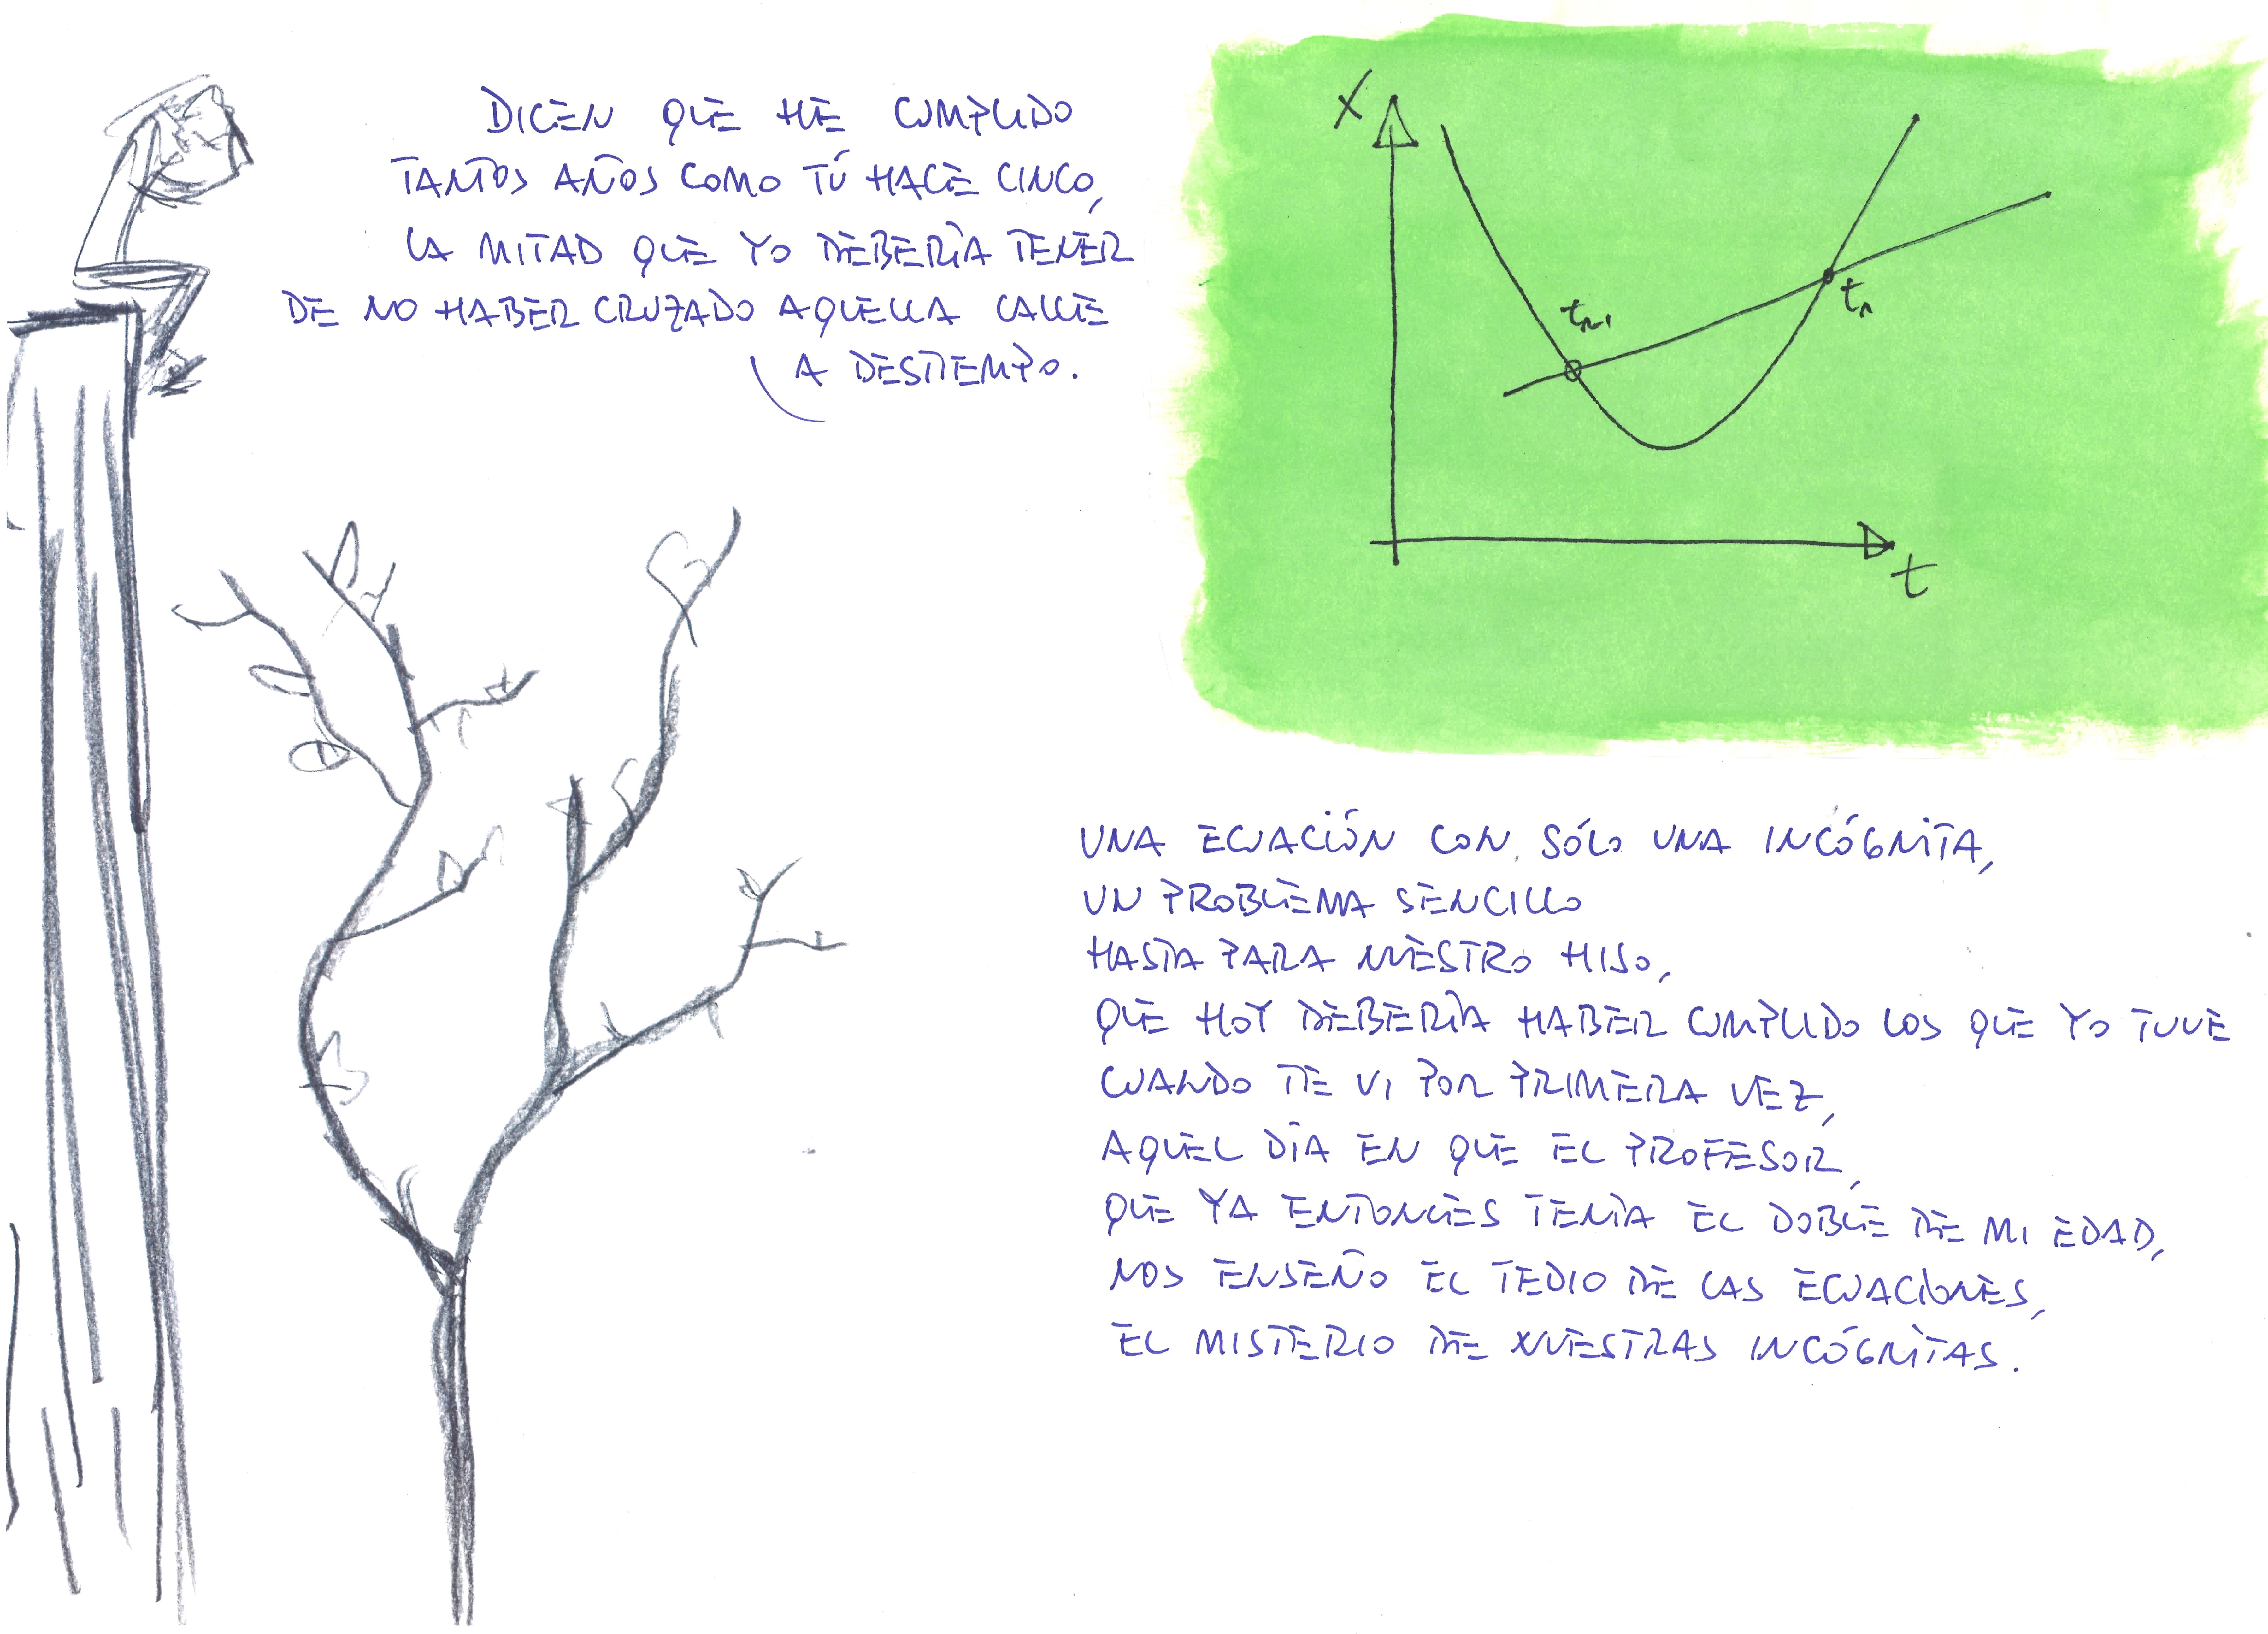 DICEN QUE HE CUMPLIDO
TANTOS AÑOS COMO TÚ HACE CINCO,
LA MITAD QUE YO DEBERÍA TENER
DE NO HABER CRUZADO AQUELLA CALLE
A DESTIEMPO.
X
tn-1
tn
t
UNA ECUACIÓN CON SÓLO UNA INCÓGNITA,
UN PROBLEMA SENCILLO
HASTA PARA NUESTRO HIJO,
QUE HOY DEBERÍA HABER CUMPLIDO LOS QUE YO TUVE
CUANDO TE VI POR PRIMERA VEZ,
AQUEL DÍA EN QUE EL PROFESOR,
QUE YA ENTONCES TENÍA EL DOBLE DE MI EDAD,
NOS ENSEÑÓ EL TEDIO DE LAS ECUACIONES,
EL MISTERIO DE NUESTRAS INCÓGNITAS.